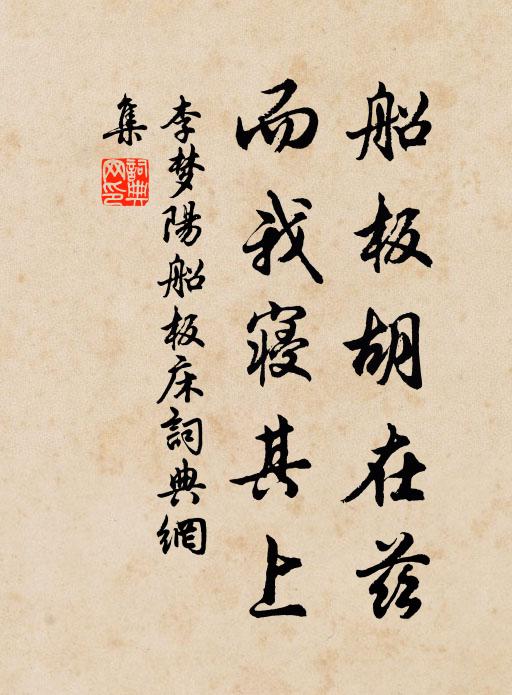 船板胡在兹
而我寝其上
李梦陽船板床詞典網
集
詞典
网印